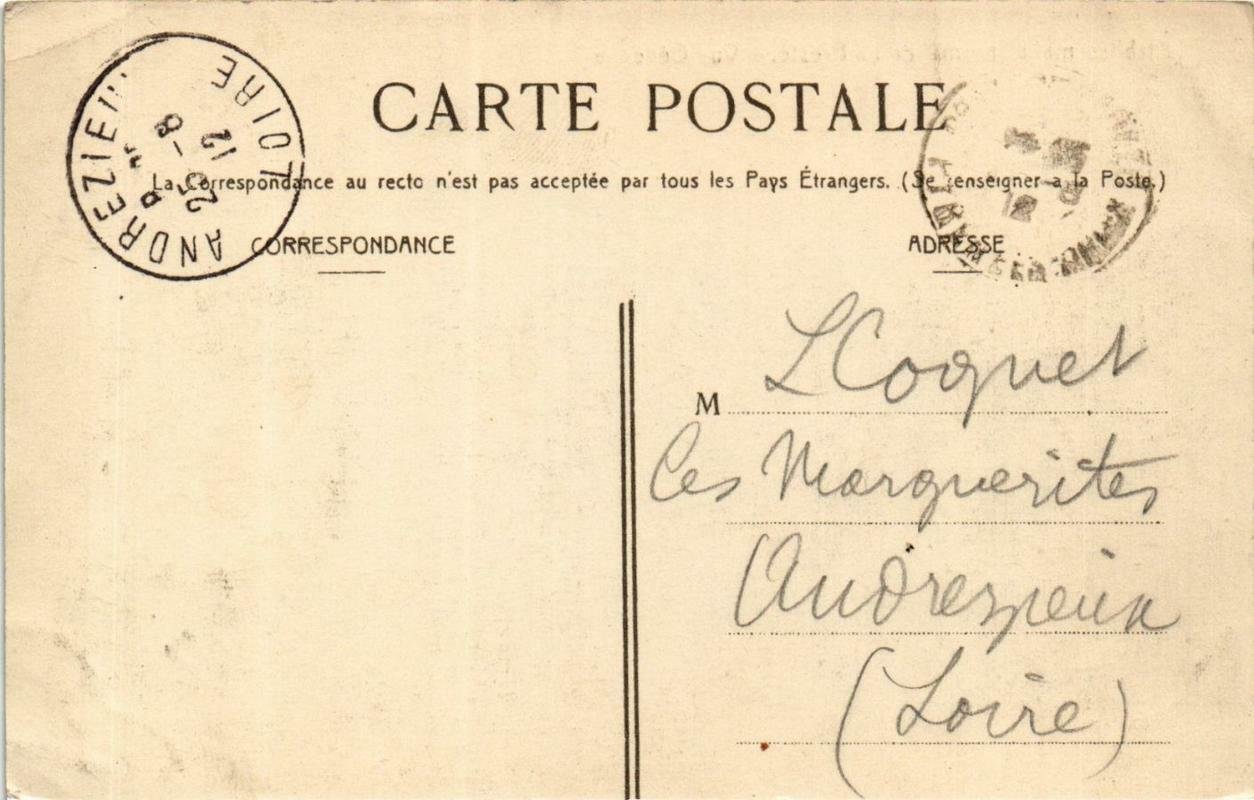 CARTE POSTALE
La Correspondance au recto n'est pas acceptée par tous les Pays Étrangers. (Se renseigner a la Poste.)
CORRESPONDANCE
ADRESSE
ANDREZIEU
LOIRE
25 - 8
12
M L Coquet
Les Marguerites
Andrezieux
(Loire)